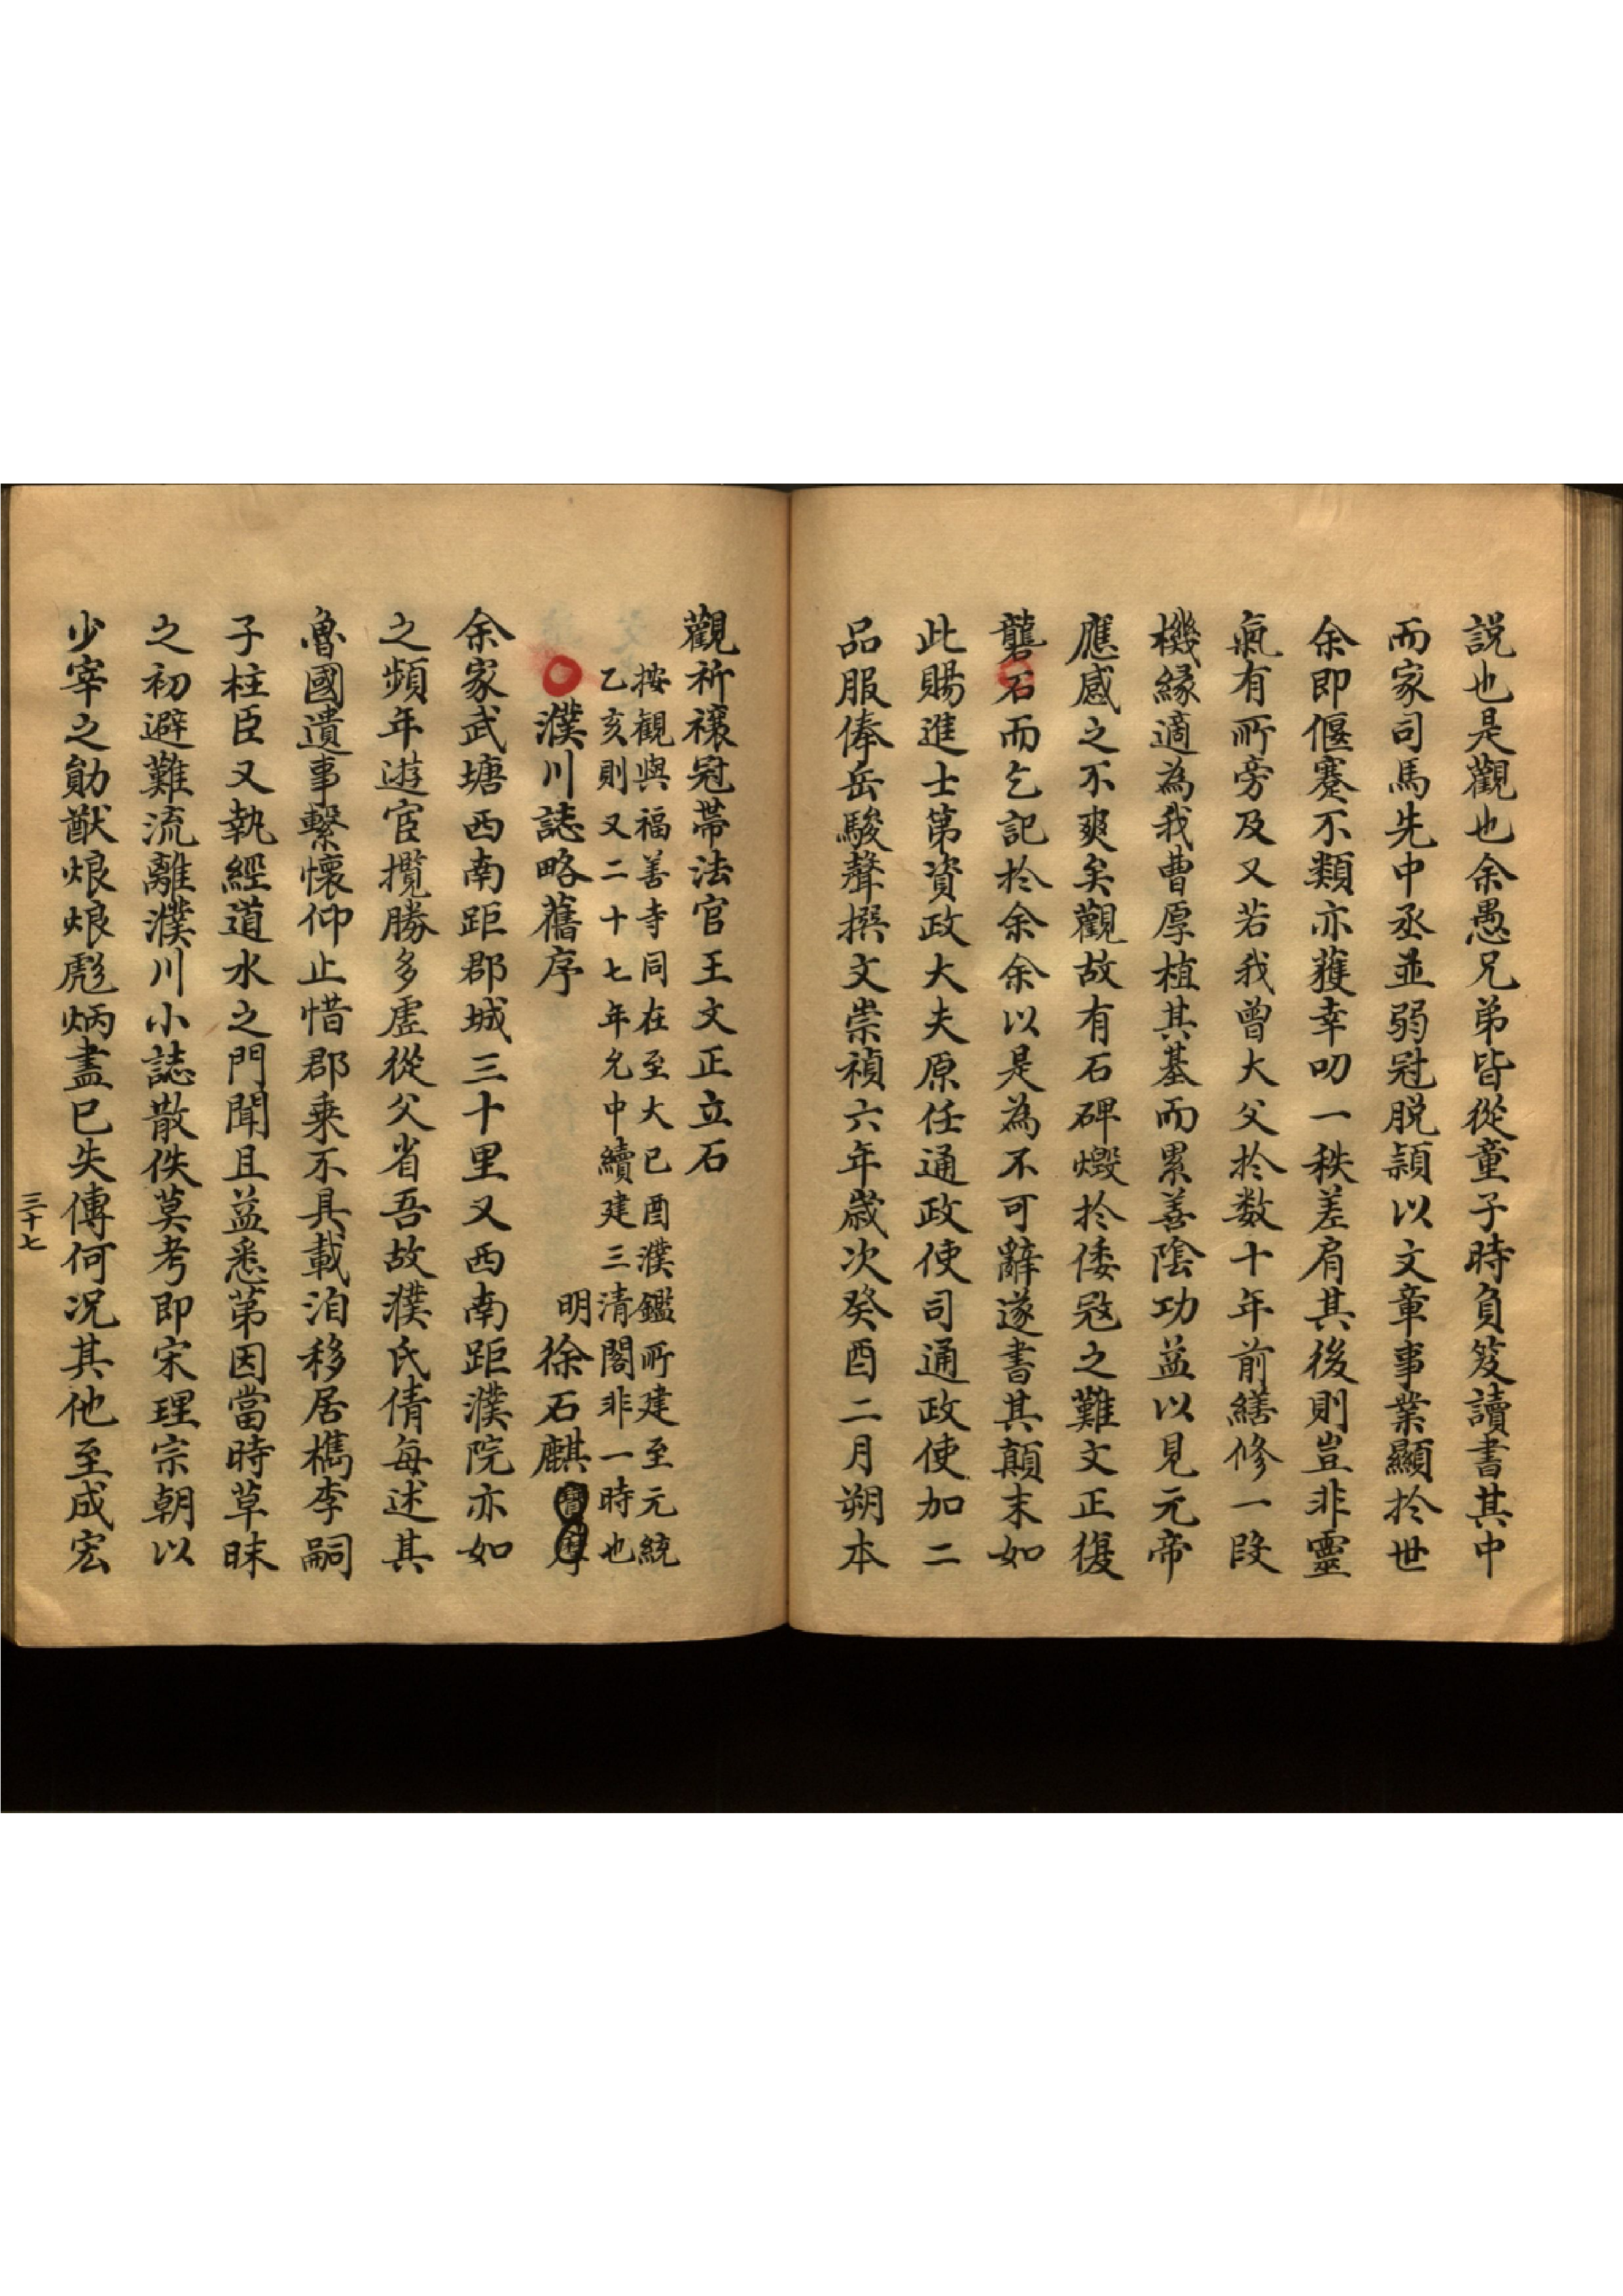 説也是觀也余愚兄弟皆從童子時負笈讀書其中
而家司馬先中丞並弱冠脱頴以文章事業顯扵世
余即偃蹇不類亦獲幸叨一秩差肩其後則豈非靈
氣有所旁及又若我曾大父扵数十年前繕修一段
機緣適為我曹厚植其基而累善陰功益以見元帝
應感之不爽矣觀故有石碑燬扵倭冦之難文正復
礱石而乞記扵余余以是為不可辭遂書其顛末如
此賜進士第資政大夫原任通政使司通政使加二
品服俸岳駿聲撰文崇禎六年歲次癸酉二月朔本
觀祈禳冠帶法官王文正立石
按觀與福善寺同在至大已酉濮鑑所建至元統
乙亥則又二十七年允中續建三清閣非一時也
濮川誌略舊序 明徐石麒
余家武塘西南距郡城三十里又西南距濮院亦如
之頻年遊宦攬勝多虛從父省吾故濮氏倩每述其
魯國遺事繫懷仰止惜郡乘不具載洎移居檇李嗣
子柱臣又執經道水之門聞且益悉第因當時草昧
之初避難流離濮川小誌散佚莫考即宋理宗朝以
少宰之勛猷烺烺彪炳盡已失傳何况其他至成宏
三十七